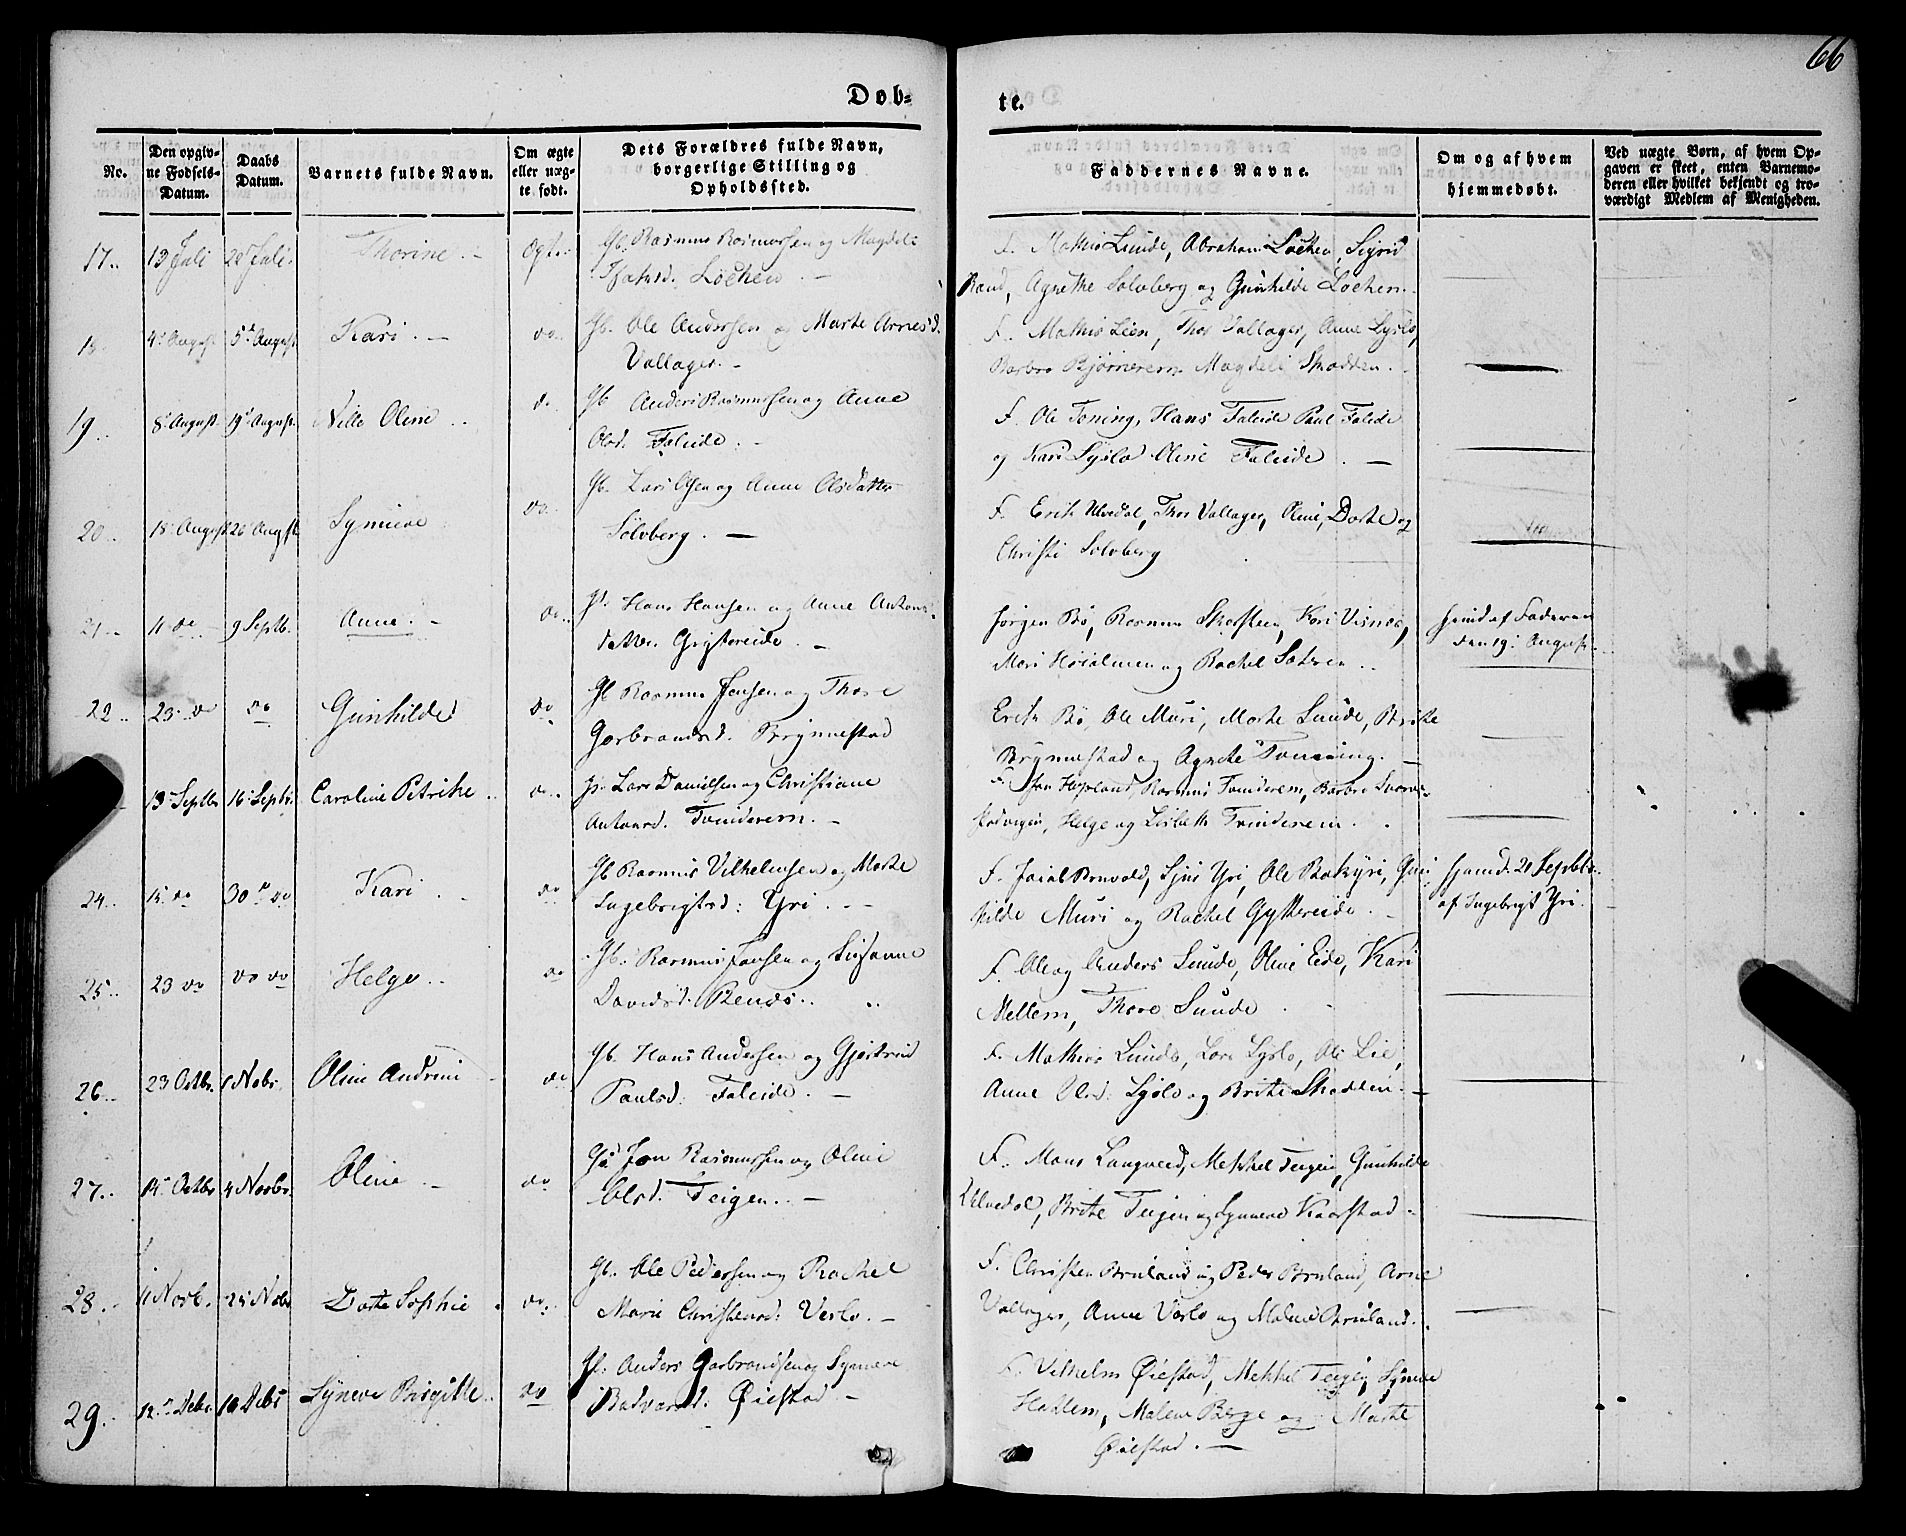 66
Døb-
te.
No.
Den opgiv-
ne Fødsels-
Datum.
Daabs
Datum.
Barnets fulde Navn.
Om ægte
eller uæg-
te født.
Dets Forældres fulde Navn,
borgerlige Stilling og
Opholdssted.
Faddernes Navne.
Om og af hvem
hjemmedøbt.
Ved uægte Børn, af hvem Op-
gaven er skeet, enten Barnemo-
deren eller hvilket bekjendt og tro-
værdigt Medlem af Menigheden.
17.. 13 Juli 28 Juli. Thorine. - Ægte. Gb. Rasmus Rasmussen og Magdeli
Løchen. -
F. Mathis Lunde, Abraham Løchen, Sigrid
Rand, Agnethe Solvberg og Gunhilde Løchen.
4 August 5 August Kari. - do. Gb. Ole Andersen og Marte Arnesd.
Vallager. -
F. Mathis Leen, Thor Vallager, Anne Lyslo,
Barbro Bjørnerem Magdeli Skadden.
19.. 8 August. 19 August. Nille Oline .. Gb Anders Rasmussen og Anne
Olsd. Faleide. -
F. Ole Toning, Hans Faleide Paul Faleide
og Kari Lyslo Oline Faleide. -
20.. 18 August 26 August Synneve do. Gb. Lars Olsen og Anne Olsdatter
Sølvberg. -
F. Erik Ulvedal, Thor Vallager, Oline, Dorte og
Christi Solvberg
21.. 11 do 9 Septb. Anne. - do.. Hans Hansen og Anne Antons-
datter Gryttereide. -
Jørgen Bø, Rasmus Skarsteen, Kari Visnæs,
Mari Høialmen og Rachel Sætren ..
hjemd af Faderen
den 19. August
22.. 23 do do Gunhilde do Gb Rasmus Jensen og Thore
Garbrandsd. Brynnestad
Erik Bø, Ole Muri, Marte Sunde, Brite
Brynnestad og Agnete Tonning. -
13 Septbr 16 Septbr. Caroline Petrike .. Gb. Lars Danielsen og Christiane
Antonsd. Tvinderem. -
F. Jon Hopland, Rasmus Tvinderem, Barbro
Helge og Lisbeth Tvinderem.
24.. 15 do 30 do Kari do Gb Rasmus Vilhelmsen og Marte
Ingebrigtsd: Yri. - -
F. Jacob Bruvold, Ljus Yri, Ole Bakyri, Gun-
hilde Muri og Rachel Gyttereide. -
hjemd. 21 Septbr.
af Ingebrigt Yri.
25.. 23 do do do Helge .. do Gb. Rasmus Jansen og Susanne
Davidsd. Renæs..
F. Ole og Anders Sunde, Oline Eide, Kari
Mellem, Thore Sunde
26.. 23 Octbr. 1 Nobr. Oline Andrine do Gb. Hans Andersen og Gjertrud
Paulsd: Faleide. -
F. Mathias Lunde, Lars Lyslo, Ole Lie,
Anne Olsd: Lyslo og Brite Skadden. -
27.. 15 Octbr 4 Novbr. Oline - do Jon Rasmussen og Oline
Olsd. Teigen. -
F. Mons Langved, Mekkel Teigen, Gunhilde
Ulvedal, Brite Teigen og Synneve Kaarstad.
28.. 11 Novb. 25 Nobr Dorte Sophie do. Gb. Ole Pedersen og Rachel
Marie Christensd: Verlo. -
F. Christen Bruland og Peder Bruland, Arne
Vallager, Anne Verlo og Malene Bruland.
29.. 12 Debr. 16 Debr Synneve Birgitte .. do Gb. Anders Garbrandsen og Synneve
Badvarsd. Øiestad -
F. Vilhelm Øiestad, Mekkel Teigen, Synneve
Hadlem, Malene Berge og Marte
Øiestad. -